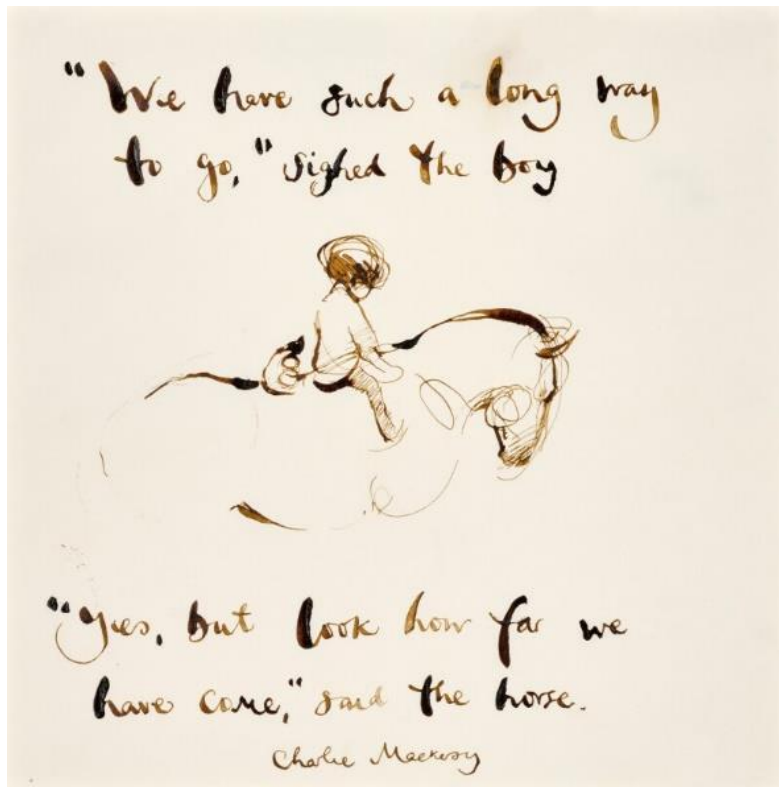 "We have such a long way
to go," sighed the boy
"Yes, but look how far we
have come," said the horse.
Charlie Mackesy